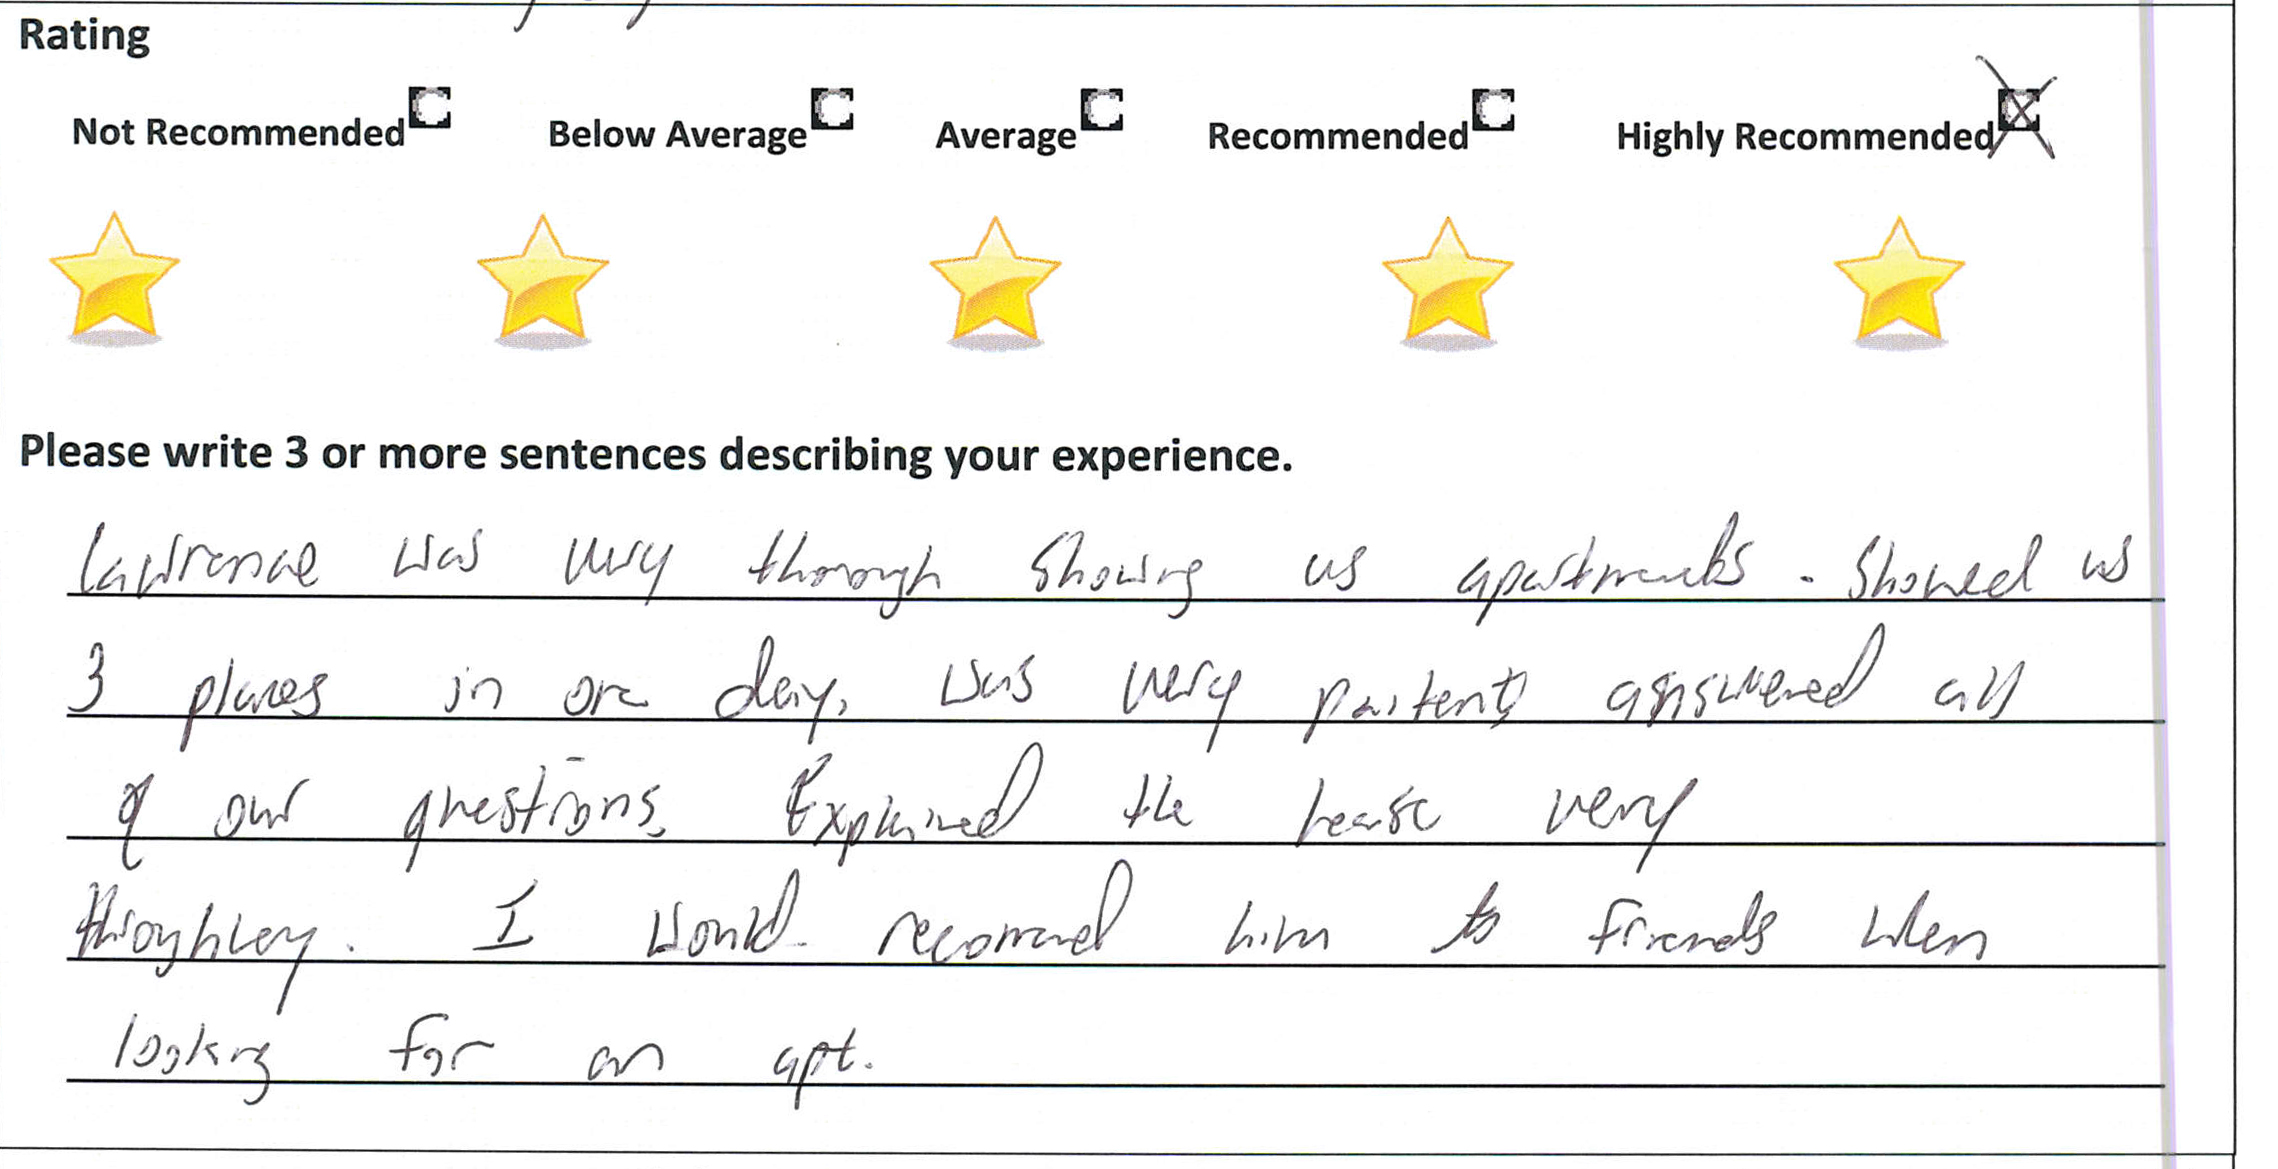 Rating
Not Recommended Below Average Average Recommended Highly Recommended
Please write 3 or more sentences describing your experience.
Lawrence was very thorough showing us apartments. Showed us
3 places in one day, was very paitent, answered all
of our questions. Explained the lease very
throughley. I would recommend him to friends when
looking for an apt.